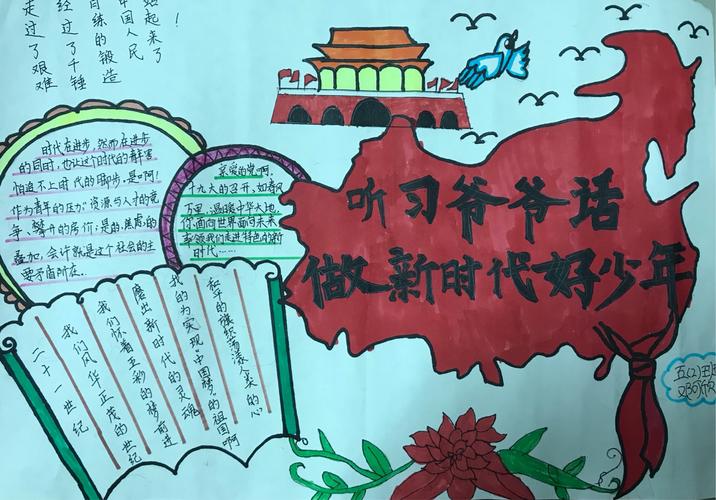 走过了艰难
经过了千锤
百练的锻造
中国人民
起来了
!
听习爷爷话
做新时代好少年
时代在进步,然而在进步
的同时,也让这个时代的青年害
怕追不上时代的脚步。是啊!
作为青年的压力:资源与人才的竞
争、攀升的房价;是的,焦虑的
叠加,会计就是这个社会的主
要矛盾所在..
亲爱的党啊,
十九大的召开,如春风
万里,温暖中华大地,
你,面向世界面向未来
领我们走进特色的新
时代……
二十一世纪
我们风华正茂的世纪
我们怀着五彩的梦前进
磨出新时代的灵魂
我的为实现“中国梦”的祖国啊
和平的旗帜荡漾人类的心
五(2)班